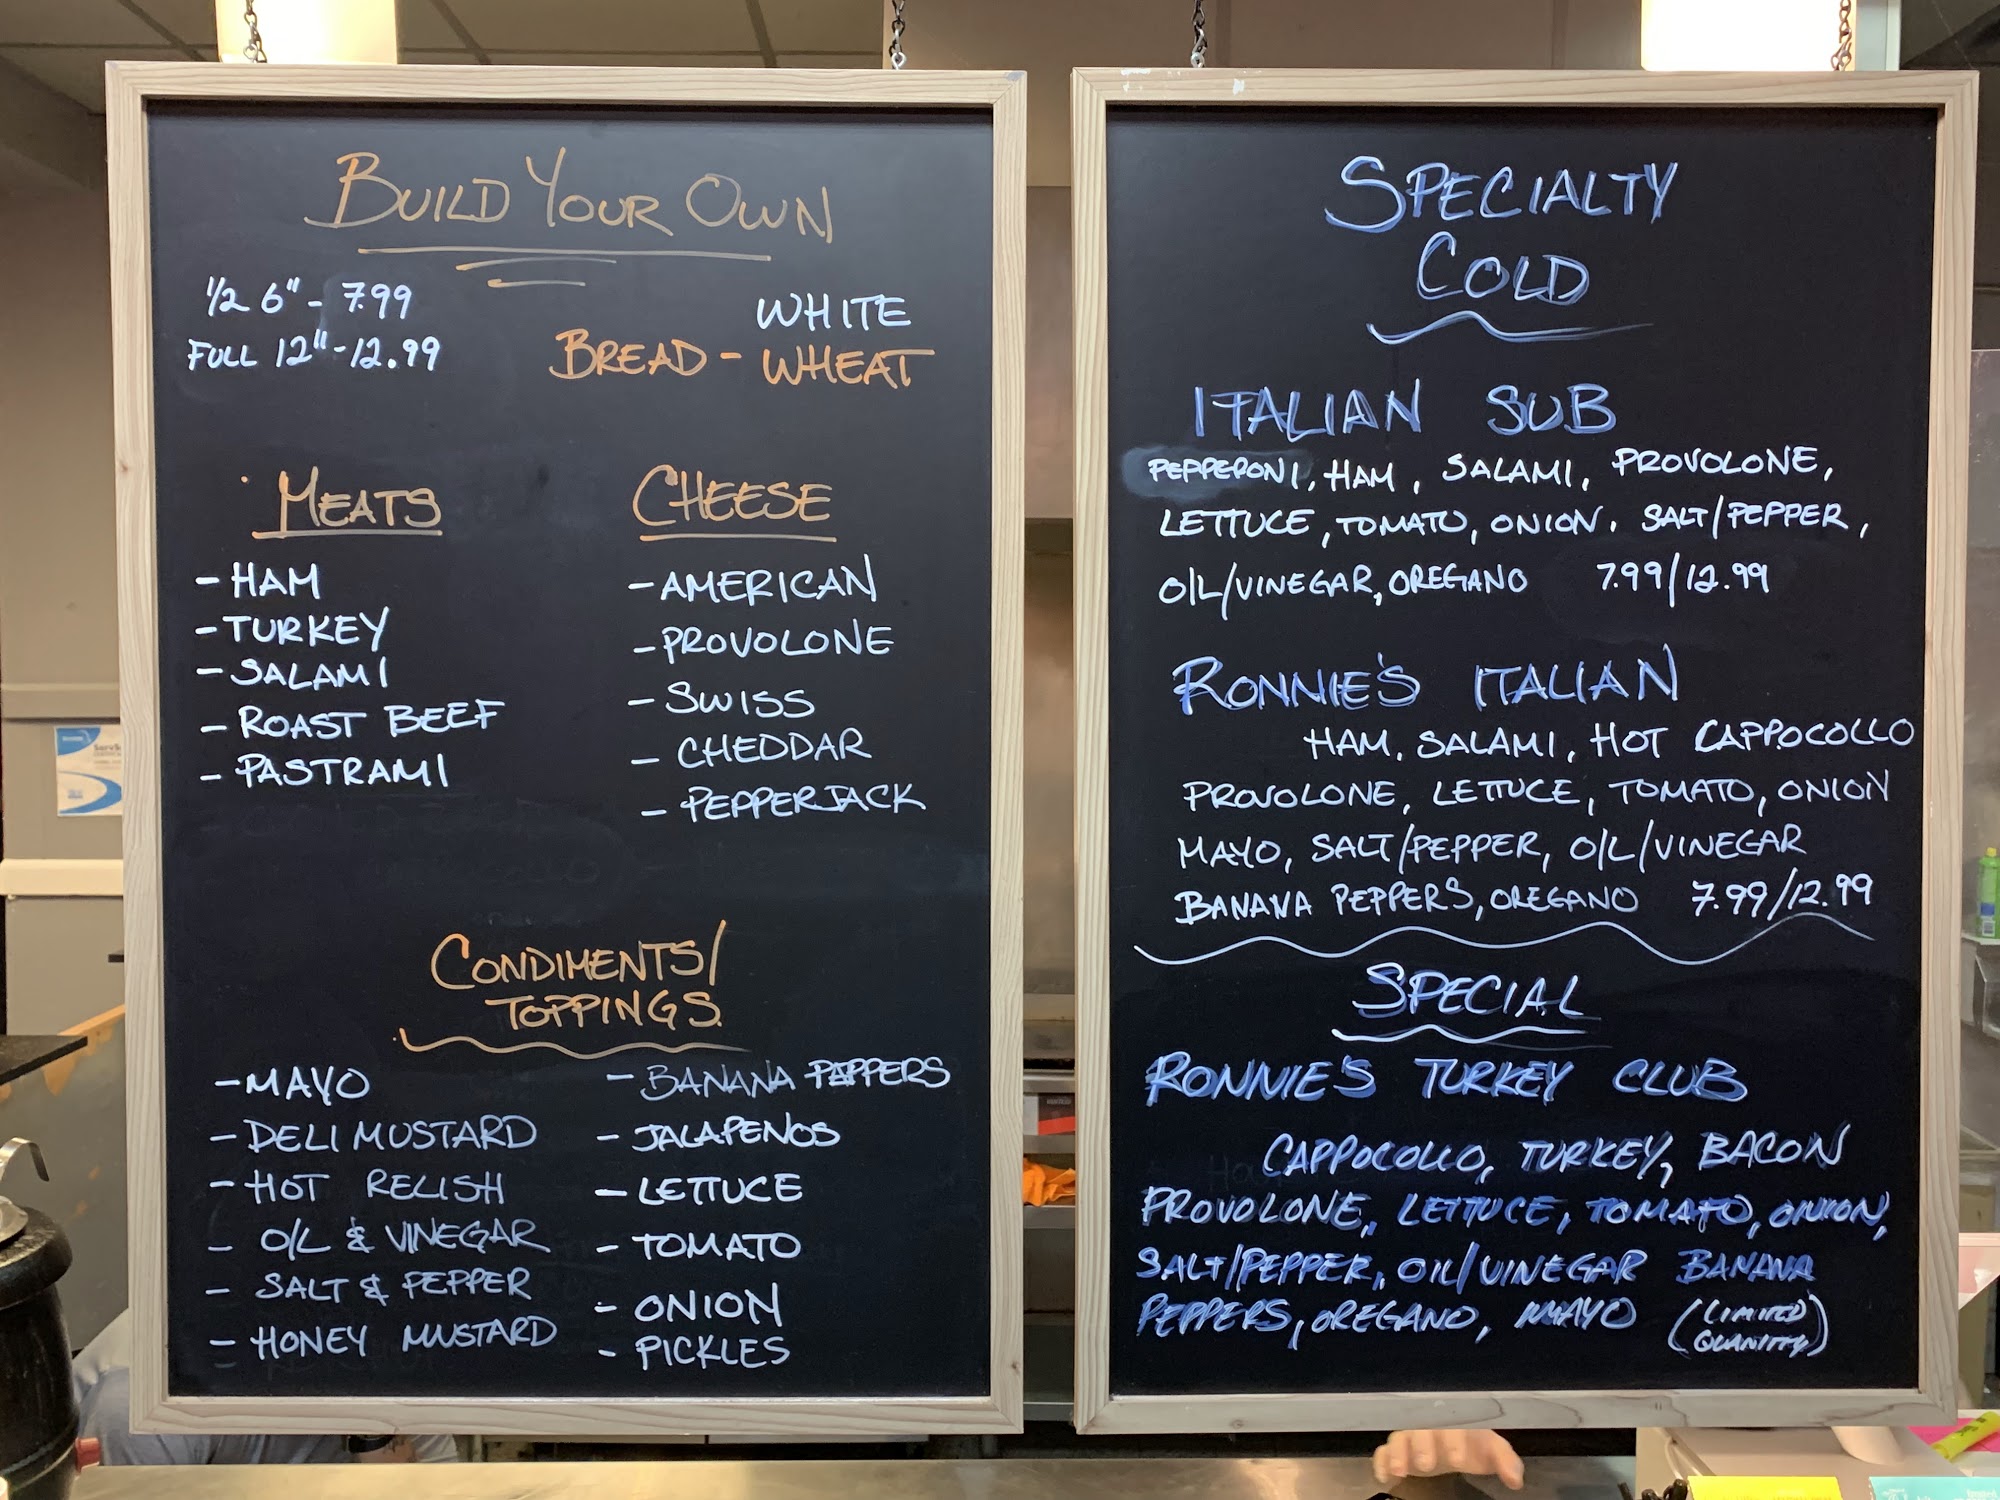 BUILD YOUR OWN
1/2 6" - 7.99
FULL 12" - 12.99
WHITE
BREAD - WHEAT
MEATS
- HAM
- TURKEY
- SALAMI
- ROAST BEEF
- PASTRAMI
CHEESE
- AMERICAN
- PROVOLONE
- SWISS
- CHEDDAR
- PEPPERJACK
CONDIMENTS/
TOPPINGS
- MAYO
- DELI MUSTARD
- HOT RELISH
- OIL & VINEGAR
- SALT & PEPPER
- HONEY MUSTARD
- BANANA PEPPERS
- JALAPENOS
- LETTUCE
- TOMATO
- ONION
- PICKLES
SPECIALTY
COLD
ITALIAN SUB
PEPPERONI, HAM, SALAMI, PROVOLONE,
LETTUCE, TOMATO, ONION, SALT/PEPPER,
OIL/VINEGAR, OREGANO 7.99/12.99
RONNIE'S ITALIAN
HAM, SALAMI, HOT CAPPOCOLLO
PROVOLONE, LETTUCE, TOMATO, ONION
MAYO, SALT/PEPPER, OIL/VINEGAR
BANANA PEPPERS, OREGANO 7.99/12.99
SPECIAL
RONNIE'S TURKEY CLUB
CAPPOCOLLO, TURKEY, BACON
PROVOLONE, LETTUCE, TOMATO, ONION,
SALT/PEPPER, OIL/VINEGAR BANANA
PEPPERS, OREGANO, MAYO (LIMITED
QUANTITY)